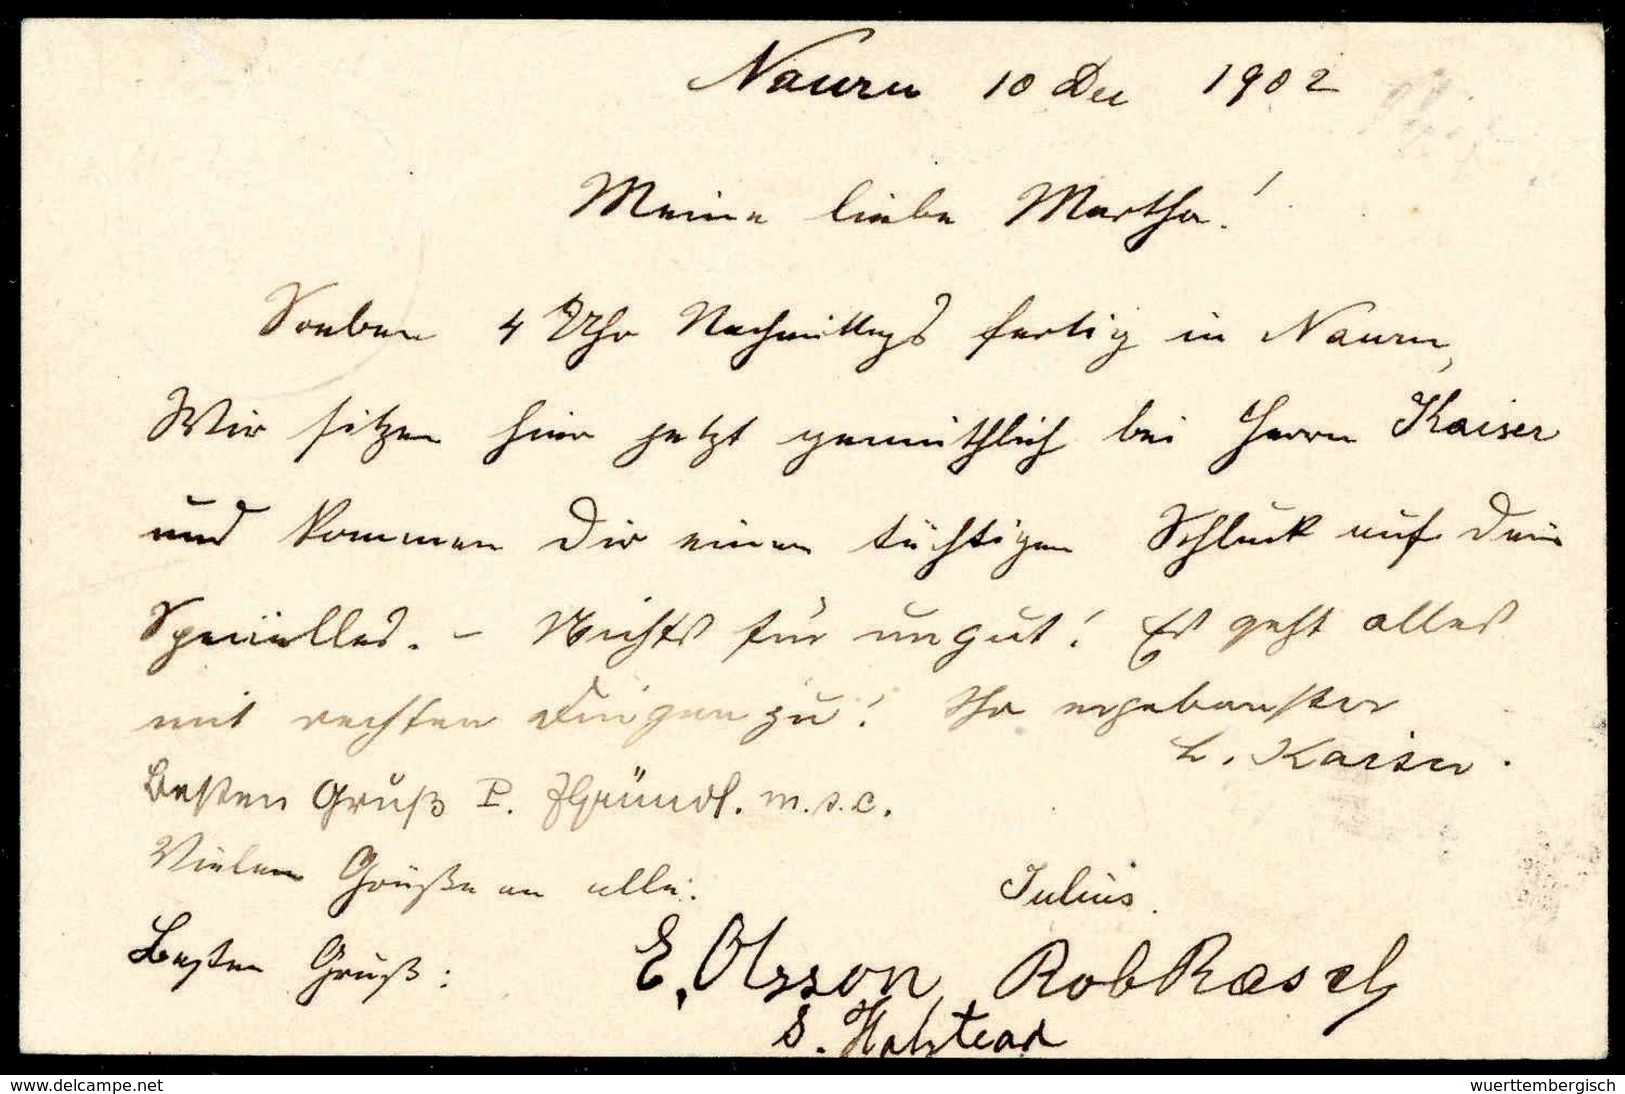 Nauru 10 Dec 1902
Meine liebe Martha!
Soeben 4 Uhr Nachmittags fertig in Nauru,
Wir sitzen hier jetzt gemüthlich bei Herrn Kaiser
und kommen Dir einen tüchtigen Schluck auf Dein
Specielles. – Nichts für ungut! Es geht alles
mit rechten Dingen zu! Ihr ergebenster
L. Kaiser.
Besten Gruß P. Gründl. m.s.c.
Vielen Grüße an alle. Julius.
Besten Gruß: E. Olsson Rob Rasch
S. Halstead
www.delcampe.net
wuerttembergisch